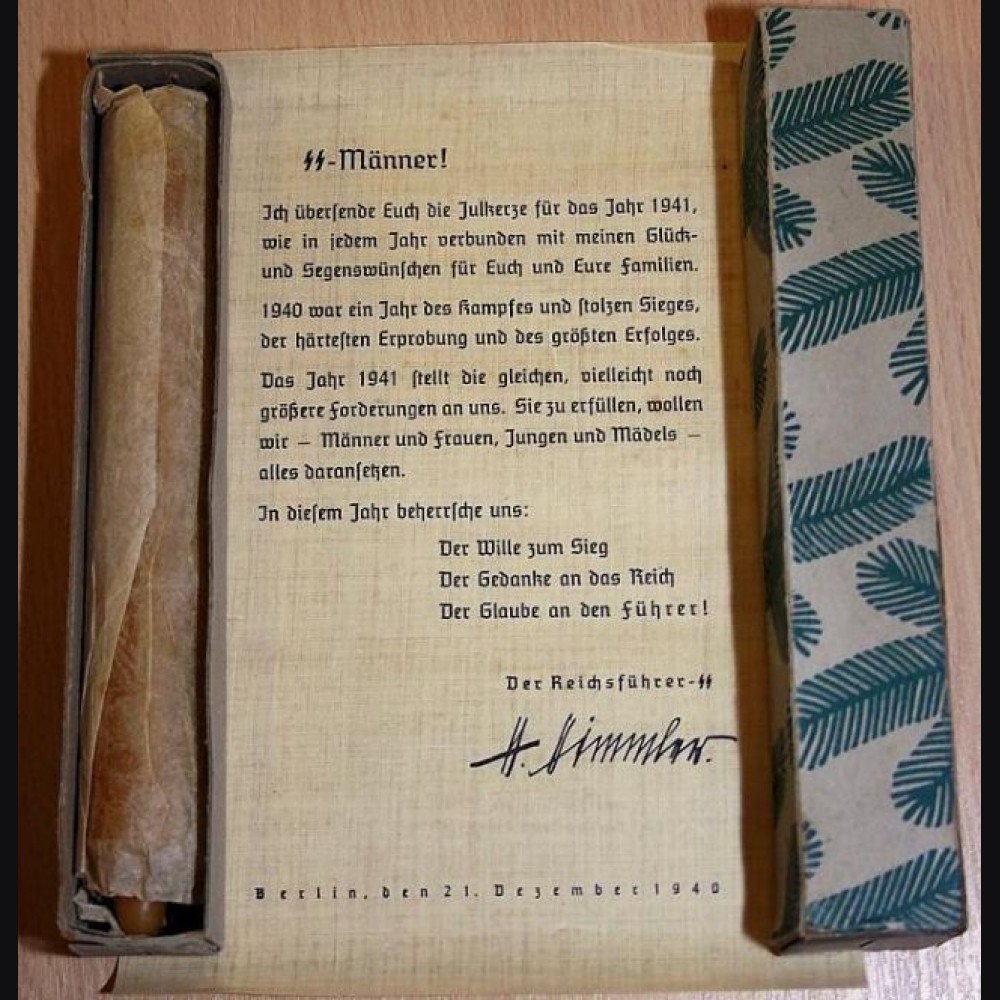 ᛋᛋ-Männer!
Ich überſende Euch die Julkerze für das Jahr 1941,
wie in jedem Jahr verbunden mit meinen Glück-
und Segenswünſchen für Euch und Eure Familien.
1940 war ein Jahr des Kampfes und ſtolzen Sieges,
der härteſten Erprobung und des größten Erfolges.
Das Jahr 1941 ſtellt die gleichen, vielleicht noch
größere Forderungen an uns. Sie zu erfüllen, wollen
wir — Männer und Frauen, Jungen und Mädels —
alles daranſetzen.
In dieſem Jahr beherrſche uns:
Der Wille zum Sieg
Der Gedanke an das Reich
Der Glaube an den Führer!
Der Reichsführer-ᛋᛋ
H. Himmler.
Berlin, den 21. Dezember 1940